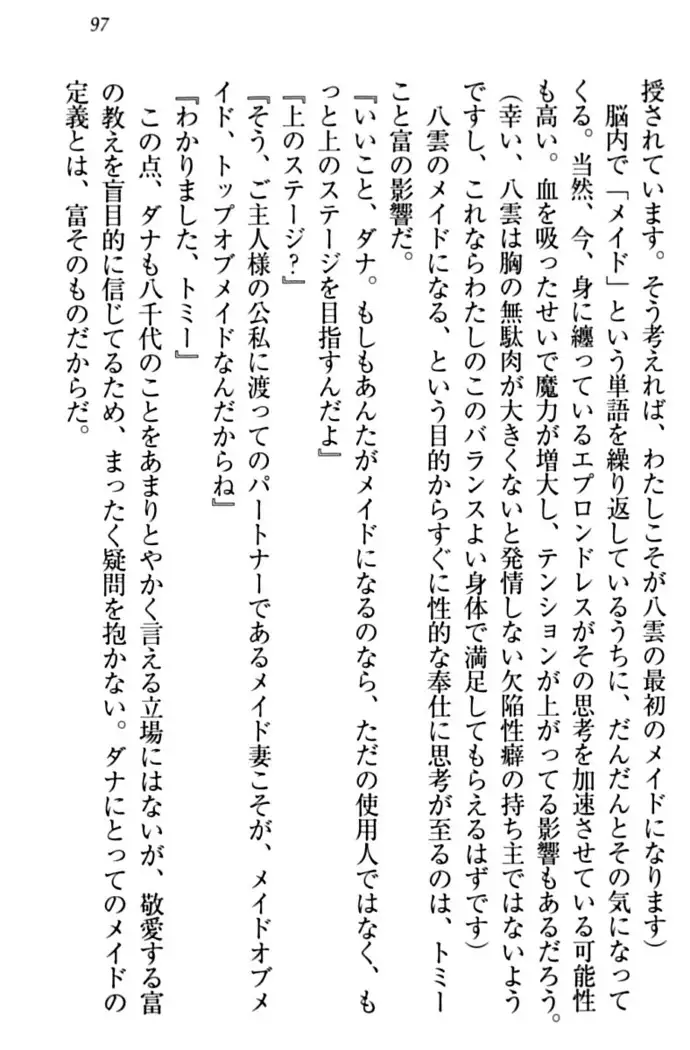 97
授されています。そう考えれば、わたしこそが八雲の最初のメイドになります)
脳内で「メイド」という単語を繰り返しているうちに、だんだんとその気になって
くる。当然、今、身に纏っているエプロンドレスがその思考を加速させている可能性
も高い。血を吸ったせいで魔力が増大し、テンションが上がってる影響もあるだろう。
(幸い、八雲は胸の無駄肉が大きくないと発情しない欠陥性癖の持ち主ではないよう
ですし、これならわたしのこのバランスよい身体で満足してもらえるはずです)
八雲のメイドになる、という目的からすぐに性的な奉仕に思考が至るのは、トミー
こと富の影響だ。
『いいこと、ダナ。もしもあんたがメイドになるのなら、ただの使用人ではなく、も
っと上のステージを目指すんだよ』
『上のステージ?』
『そう、ご主人様の公私に渡ってのパートナーであるメイド妻こそが、メイドオブメ
イド、トップオブメイドなんだからね』
『わかりました、トミー』
この点、ダナも八千代のことをあまりとやかく言える立場にはないが、敬愛する富
の教えを盲目的に信じてるため、まったく疑問を抱かない。ダナにとってのメイドの
定義とは、富そのものだからだ。